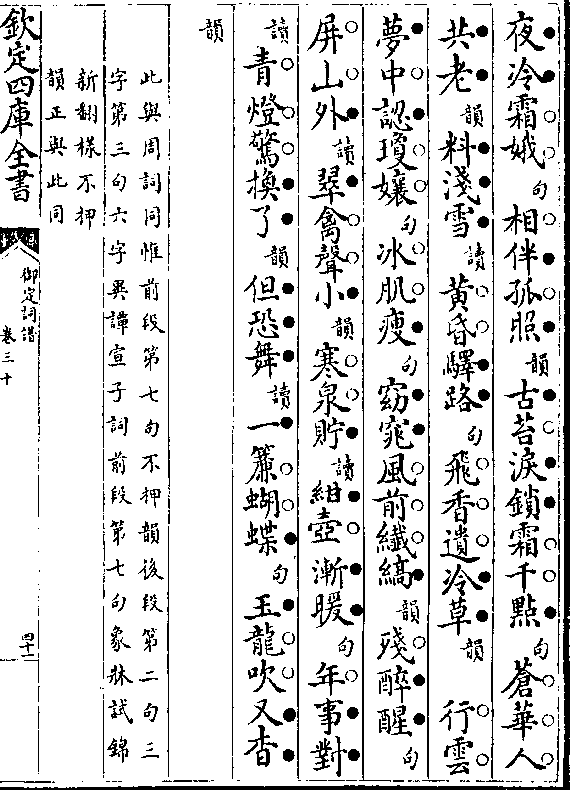 夜冷霜娥句相伴孤照韻古苔淚鎖霜千點句蒼華人
共老韻料淺雪讀黃昏驛路句飛香遺冷草韻行雲
夢中認瓊孃句冰肌瘦句窈窕風前纖縞韻殘醉醒句
屏山外讀翠禽聲小韻寒泉貯讀紺壺漸暖句年事對
讀青燈驚換了韻但恐舞讀一簾蝴蝶句玉龍吹又杳
韻
此與周詞同惟前段第七句不押韻後段第二句三
字第三句六字異譚宣子詞前段第七句象牀試錦
新翻樣不押
韻正與此同
欽定四庫全書
御定詞譜
卷三十
四十一